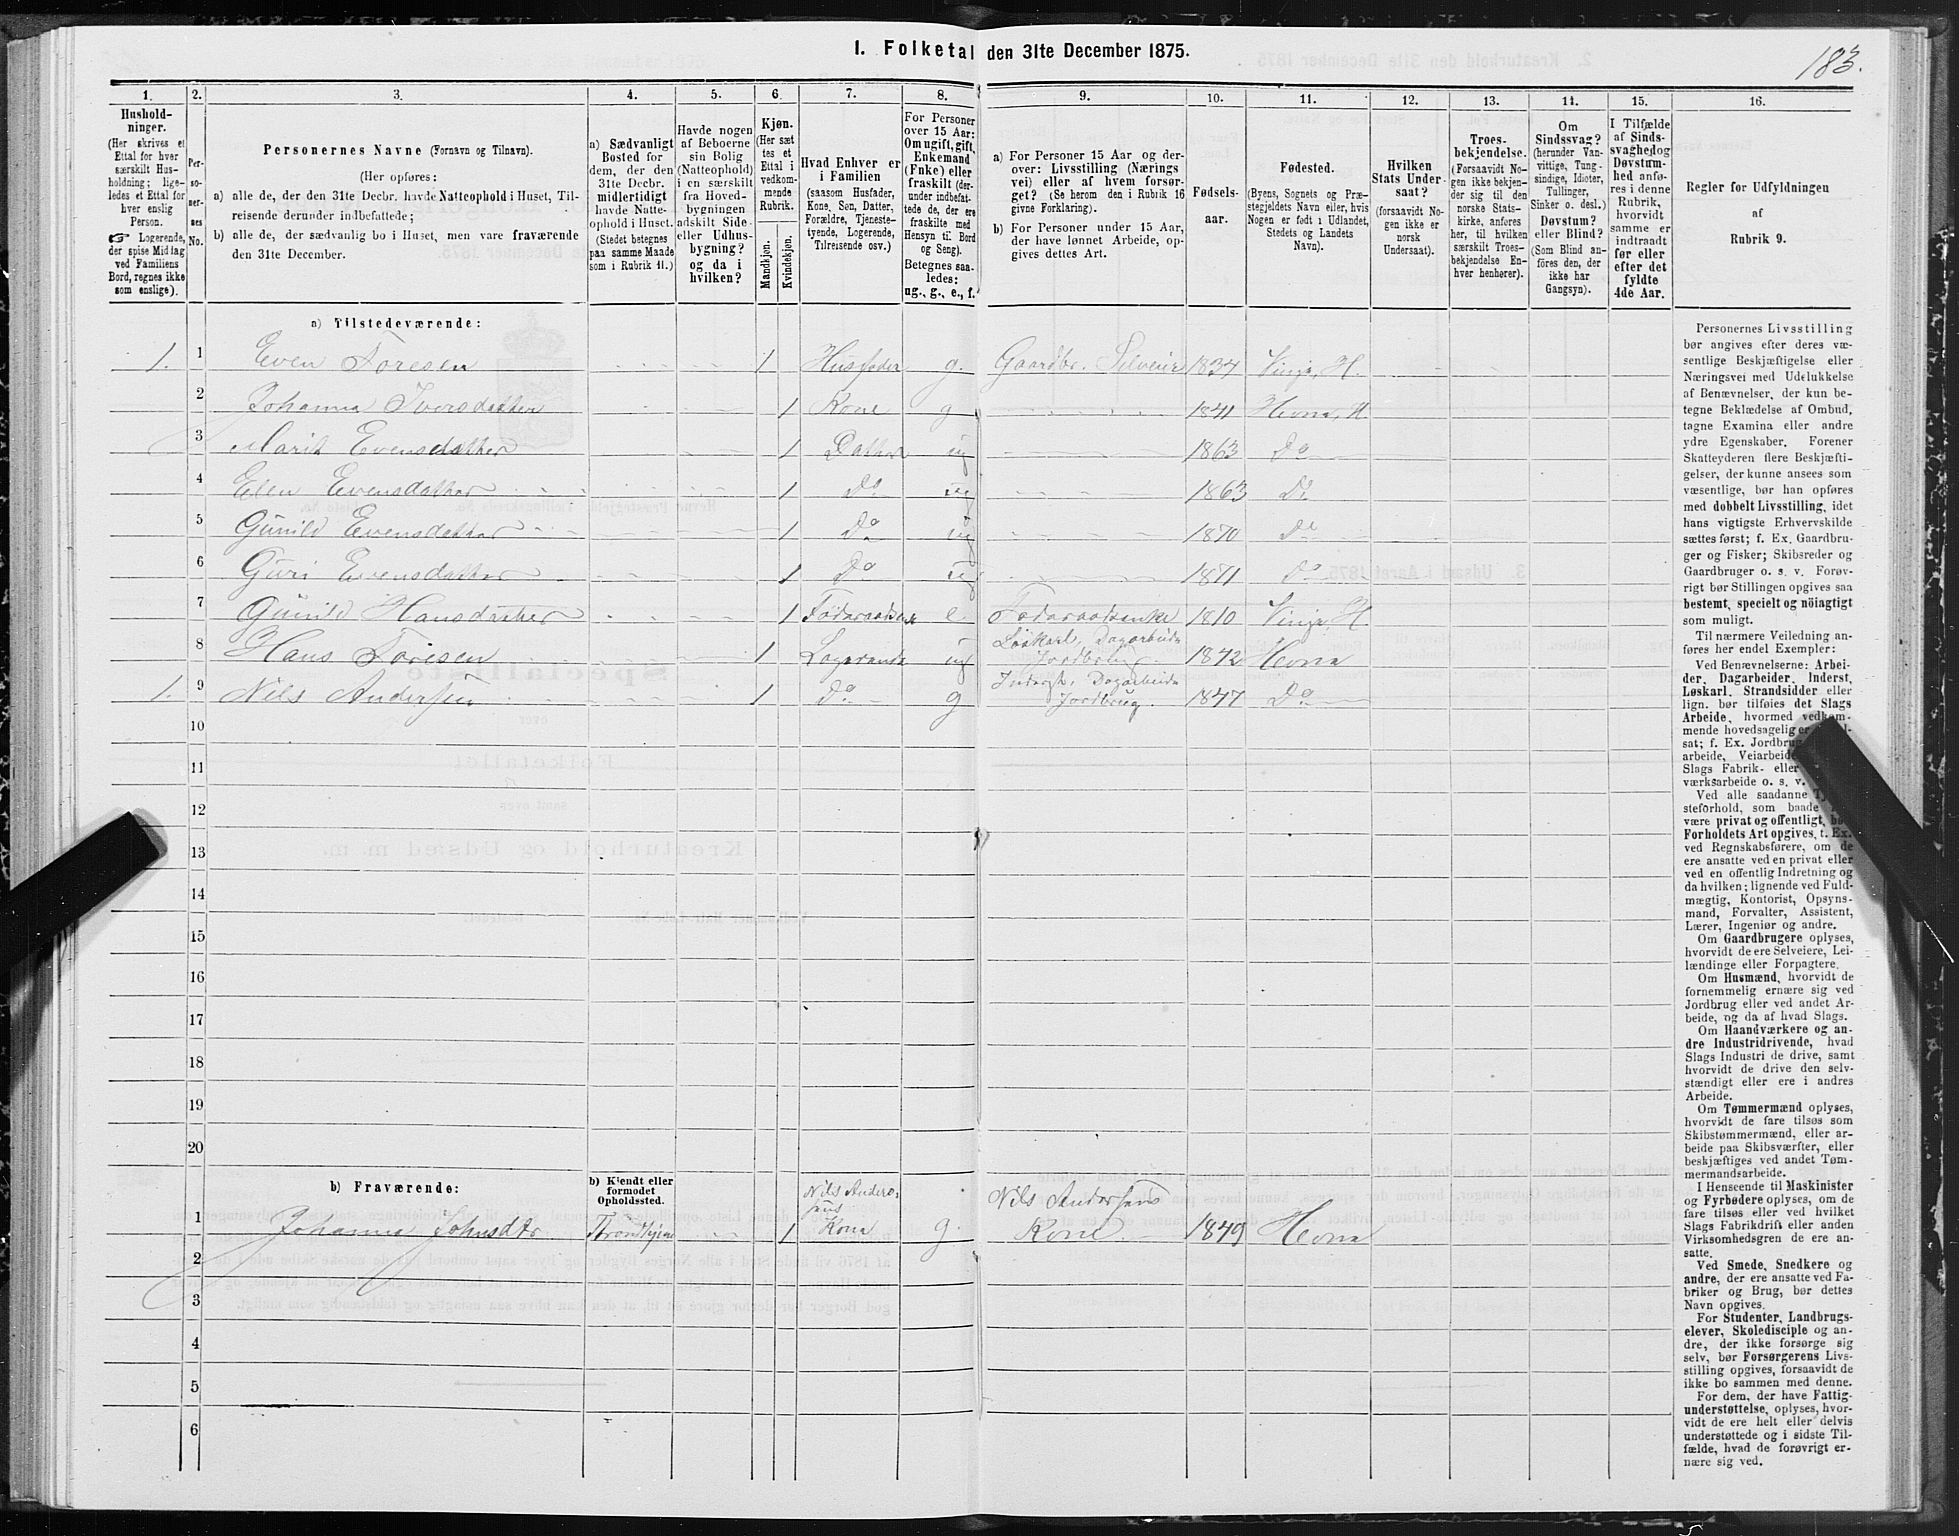 183.
1. Folketal den 31te December 1875.
1. 2. 3. 4. 5. 6. 7. 8. 9. 10. 11. 12. 13. 14. 15. 16.
Hushold-
ninger.
(Her skrives et
Ettal for hver
særskilt Hus-
holdning; lige-
ledes et Ettal for
hver enslig
Person.
☞ Logerende,
der spise Middag
ved Familiens
Bord, regnes ikke
som enslige).
Per-
so-
ner-
nes
No.
Personernes Navne (Fornavn og Tilnavn).
(Her opføres:
a) alle de, der den 31te Decbr. havde Natteophold i Huset, Til-
reisende derunder indbefattede;
b) alle de, der sædvanlig bo i Huset, men vare fraværende
den 31te December.
a) Sædvanligt
Bosted for
dem, der den
31te Decbr.
midlertidigt
havde Natte-
ophold i Huset.
(Stedet betegnes
paa samme Maade
som i Rubrik 11.)
Havde nogen
af Beboerne
sin Bolig
(Natteophold)
i en særskilt
fra Hoved-
bygningen
adskilt Side-
eller Udhus-
bygning?
og da i
hvilken?
Kjøn.
(Her sæt
tes et
Ettal i
vedkom-
mende
Rubrik.
Mandkjøn.
Kvindekjøn.
Hvad Enhver er
i Familien
(saasom Husfader,
Kone, Søn, Datter,
Forældre, Tjeneste-
tyende, Logerende,
Tilreisende osv.)
For Personer
over 15 Aar:
Om ugift, gift,
Enkemand
(Enke) eller
fraskilt (der-
under indbefat-
tede de, der ere
fraskilte med
Hensyn til Bord
og Seng).
Betegnes saa-
ledes:
ug., g., e., f.
a) For Personer 15 Aar og der-
over: Livsstilling (Nærings
vei) eller af hvem forsør-
get? (Se herom den i Rubrik 16
givne Forklaring).
b) For Personer under 15 Aar,
der have lønnet Arbeide, op-
gives dettes Art.
Fødsels-
aar.
Fødested.
(Byens, Sognets og Præ-
stegjeldets Navn eller, hvis
Nogen er født i Udlandet,
Stedets og Landets
Navn).
Hvilken
Stats Under-
saat?
(forsaavidt No-
gen ikke er
norsk
Undersaat).
Troes-
bekjendelse.
(Forsaavidt No-
gen ikke bekjen-
der sig til den
norske Stats-
kirke, anføres
her, til hvilken
særskilt Troes-
bekjendelse En-
hver henhører).
Om
Sindssvag?
(herunder Van-
vittige, Tung-
sindige, Idioter,
Tullinger,
Sinker o. desl.)
Døvstum?
eller Blind?
(Som Blind an-
føres den, der
ikke har
Gangsyn).
I Tilfælde
af Sinds-
svaghed og
Døvstum-
hed anfø-
res i denne
Rubrik,
hvorvidt
samme er
indtraadt
før eller
efter det
fyldte
4de Aar.
Regler for Udfyldningen
af
Rubrik 9.
a) Tilstedeværende:
1. 1 Even Toresen 1 Husfader g. Gaardbr. Selveier 1834 Vinje, H.
2 Johanna Iversdatter 1 Kone g 1841 Hevne, H
3 Marit Evensdatter 1 Datter ug 1863 Do
4 Elen Evensdatter 1 Do ug 1863 Do
5 Gunild Evensdatter 1 Do ug 1870 Do
6 Guri Evensdatter 1 Do ug 1871 Do
7 Gunild Hansdatter 1 e. Føderaadsenke 1810 Vinje, H.
8 Hans Toresen 1 Logerende ug Løskarl, Dagarbeide Jordbrug 1842 Hevne
1. 9 Nils Andersen 1 Do g Inderst, Dagarbeide Jordbrug. 1847 Do
10
11
12
13
14
15
16
17
18
19
20
b) Fraværende:
b) Kjendt eller
formodet
Opholdssted.
1 Johanna Johnsdtr Throndhjem 1 Nils Andersens Kone g. Nils Andersens Kone 1849 Hevne
2
3
4
5
6
Personernes Livsstilling
bør angives efter deres væ-
sentlige Beskjæftigelse eller
Næringsvei med Udelukkelse
af Benævnelser, der kun be-
tegne Beklædelse af Ombud,
tagne Examina eller andre
ydre Egenskaber. Forener
Skatteyderen flere Beskjæfti-
gelser, der kunne ansees som
væsentlige, bør han opføres
med dobbelt Livsstilling, idet
hans vigtigste Erhvervskilde
sættes først; f. Ex. Gaardbru-
ger og Fisker; Skibsreder og
Gaardbruger o. s. v. Forøv-
rigt bør Stillingen opgives saa
bestemt, specielt og nöiagtigt
som muligt.
Til nærmere Veiledning an-
føres her endel Exempler:
Ved Benævnelserne: Arbei-
der, Dagarbeider, Inderst,
Løskarl, Strandsidder eller
lign. bør tilføies det Slags
Arbeide, hvormed vedkom-
mende hovedsagelig er
sat; f. Ex. Jordbru
arbeide, Veiarbeide
Slags Fabrik- eller
værksarbeide o. s. v.
Ved alle saadanne
steforhold, som baade
være privat og offentligt,
Forholdets Art opgives, t. Ex.
ved Regnskabsførere, om de
ere ansatte ved en privat eller
ved en offentlig Indretning og
da hvilken; lignende ved Fuld-
mægtig, Kontorist, Opsyns-
mand, Forvalter, Assistent,
Lærer, Ingeniør og andre.
Om Gaardbrugere oplyses,
hvorvidt de ere Selveiere, Lei-
lændinge eller Forpagtere.
Om Husmænd, hvorvidt de
fornemmelig ernære sig ved
Jordbrug eller ved andet Ar-
beide, og da af hvad Slags.
Om Haandværkere og an-
dre Industridrivende, hvad
Slags Industri de drive, samt
hvorvidt de drive den selv-
stændigt eller ere i andres
Arbeide.
Om Tømmermænd oplyses,
hvorvidt de fare tilsøs som
Skibstømmermænd, eller ar-
beide paa Skibsværfter, eller
beskjæftiges ved andet Tøm-
mermandsarbeide.
I Henseende til Maskinister
og Fyrbødere oplyses, om de
fare tilsøs eller ved hvilket
Slags Fabrikdrift eller anden
Virksomhedsgren de ere an-
satte.
Ved Smede, Snedkere og
andre, der ere ansatte ved Fa-
briker og Brug, bør dettes
Navn opgives.
For Studenter, Landbrugs-
elever, Skoledisciple og an-
dre, der ikke forsørge sig
selv, bør Forsørgerens Livs-
stilling opgives, forsaavidt de
ikke bo sammen med denne.
For dem, der have Fattig-
understøttelse, oplyses, hvor-
vidt de ere helt eller delvis
understøttede og i sidste Til-
fælde, hvad de forøvrigt er-
nære sig ved.